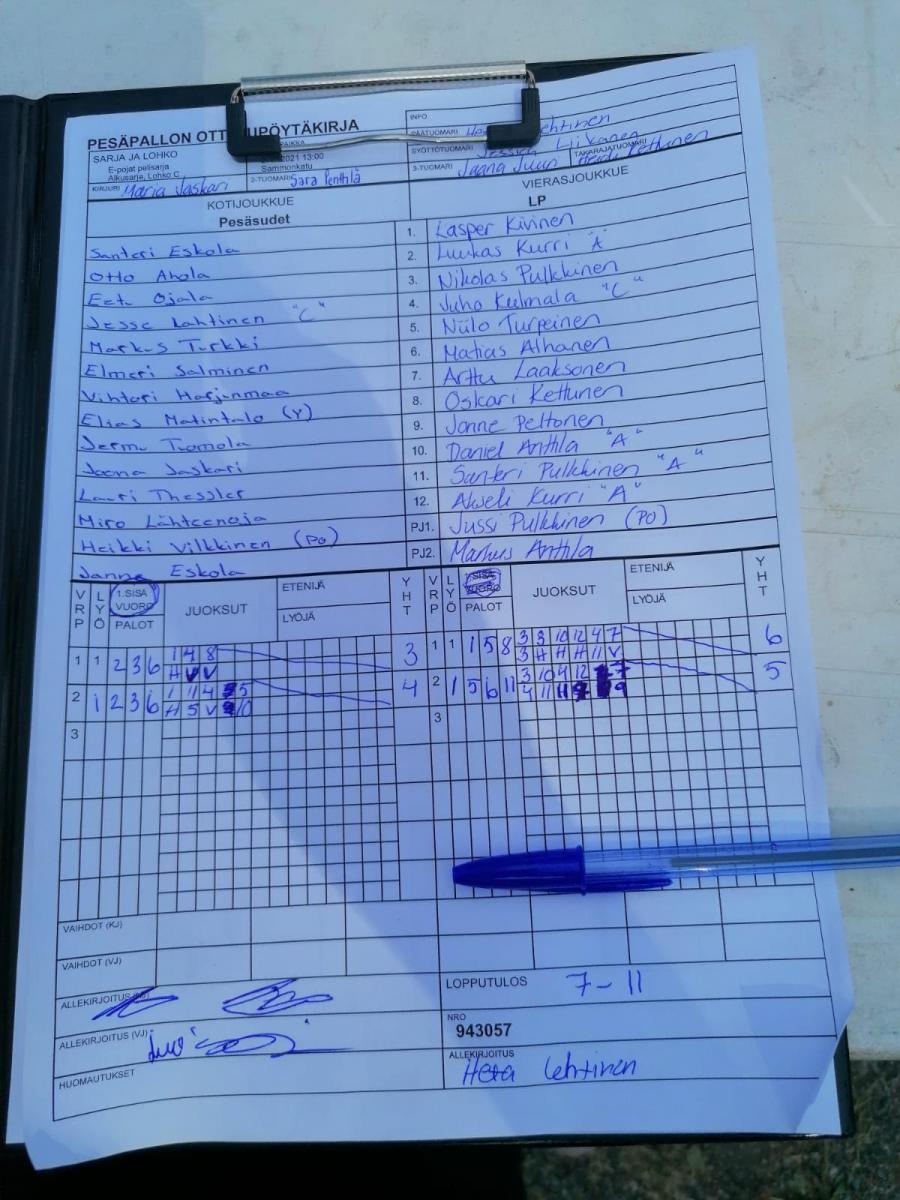 INFO
PESÄPALLON OTT UPÖYTÄKIRJA
PÄÄTUOMARI Lehtinen
SARJA JA LOHKO
E-pojat pelisarja
Alkusarja, Lohko C
2021 13:00
Sammonkatu
SYÖTTÖTUOMARI Jessica Liikanen
KIRJURI Maria Jaskari
2-TUOMARI Sara Penttilä
3-TUOMARI Jaana Juuri
TAKARAJATUOMARI Heidi Peltonen
KOTIJOUKKUE
Pesäsudet
VIERASJOUKKUE
LP
Santeri Eskola 1. Kasper Kivinen
Otto Ahola 2. Luukas Kurri "A"
Eetu Ojala 3. Nikolas Pulkkinen
Jesse Lahtinen "C" 4. Juho Kulmala "C"
Markus Turkki 5. Niilo Turpeinen
Elmeri Salminen 6. Matias Alhanen
Vihtori Harjunmaa 7. Arttu Laaksonen
Elias Matintalo (Y) 8. Oskari Kettunen
Jermu Tuomola 9. Janne Peltonen
Joona Jaskari 10. Daniel Anttila "A"
Lauri Thessler 11. Santeri Pulkkinen "A"
Miro Lähteenoja 12. Akseli Kurri "A"
Heikki Vilkkinen (PO) PJ1. Jussi Pulkkinen (PO)
Janne Eskola PJ2. Markus Anttila
VRP LYÖ 1.SISÄVUORO PALOT JUOKSUT ETENIJÄ LYÖJÄ YHT VRP LYÖ 1.SISÄVUORO PALOT JUOKSUT ETENIJÄ LYÖJÄ YHT
1 1 2 3 6 1 4 8 3 1 1 1 5 8 3 8 10 12 4 7 6
H V V 3 H H H 11 V
2 1 2 3 6 1 11 4 5 4 2 1 5 6 11 3 10 4 12 7 5
H 5 V 10 4 11 11 9
3 3
VAIHDOT (KJ)
VAIHDOT (VJ)
ALLEKIRJOITUS
LOPPUTULOS 7-11
ALLEKIRJOITUS (VJ)
NRO
943057
HUOMAUTUKSET
ALLEKIRJOITUS
Heta Lehtinen